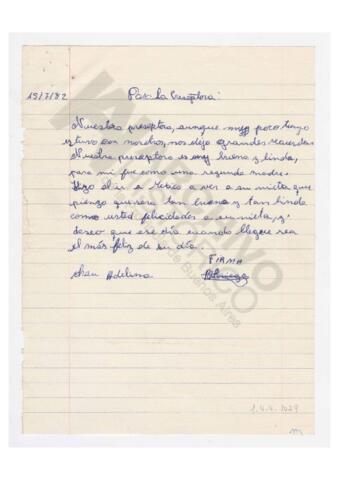 15/7/82 Para la Preceptora:
Nuestra preseptora, aunque muy poco tiempo
estuvo con nosotros, nos dejo grandes recuerdos
Nuestra preseptora es muy buena y linda,
para mi fue como una segunda madre.
Hizo a ver a su nieta que
pienzo que sera tan buena y tan linda
como usted felicidades a su nieta, y
deseo que ese día cuando llegue sea
el más feliz de su día.
FIRMA
chau Adelina
ARCHIVO
HISTORICO
de Buenos Aires
1.4.4.1029
m